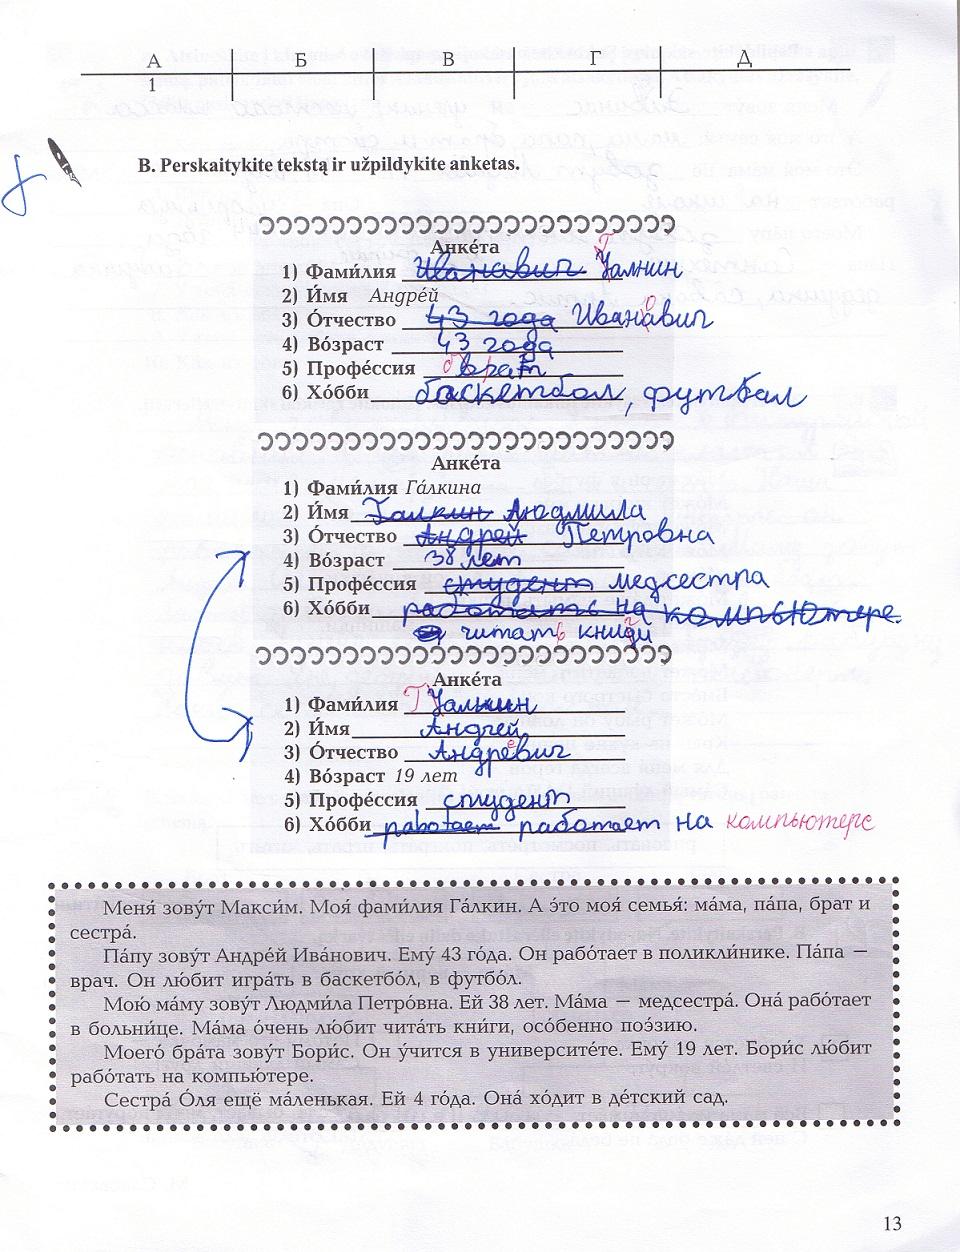 А Б В Г Д
1
8
B. Perskaitykite tekstą ir užpildykite anketas.
Анке́та
1) Фами́лия Иванавич Галнин
2) И́мя Андре́й
3) О́тчество 43 года Иванавич
4) Во́зраст 43 года
5) Профе́ссия
6) Хо́бби баскетбол, футбал
Анке́та
1) Фами́лия Га́лкина
2) И́мя Галкин Людмила
3) О́тчество Андрей Петровна
4) Во́зраст 38 лет
5) Профе́ссия студент медсестра
6) Хо́бби работать на компьютере.
читать книги
Анке́та
1) Фами́лия Галкин
2) И́мя Андрей
3) О́тчество Андревич
4) Во́зраст 19 лет
5) Профе́ссия студент
6) Хо́бби работает работает на компьютере
Меня́ зову́т Макси́м. Моя́ фами́лия Га́лкин. А э́то моя́ семья́: ма́ма, па́па, брат и
сестра́.
Па́пу зову́т Андре́й Ива́нович. Ему́ 43 го́да. Он рабо́тает в поликли́нике. Па́па —
врач. Он лю́бит игра́ть в баскетбо́л, в футбо́л.
Мою́ ма́му зову́т Людми́ла Петро́вна. Ей 38 лет. Ма́ма — медсестра́. Она́ рабо́тает
в больни́це. Ма́ма о́чень лю́бит чита́ть кни́ги, осо́бенно поэ́зию.
Моего́ бра́та зову́т Бори́с. Он у́чится в университе́те. Ему́ 19 лет. Бори́с лю́бит
рабо́тать на компью́тере.
Сестра́ О́ля ещё ма́ленькая. Ей 4 го́да. Она́ хо́дит в де́тский сад.
13